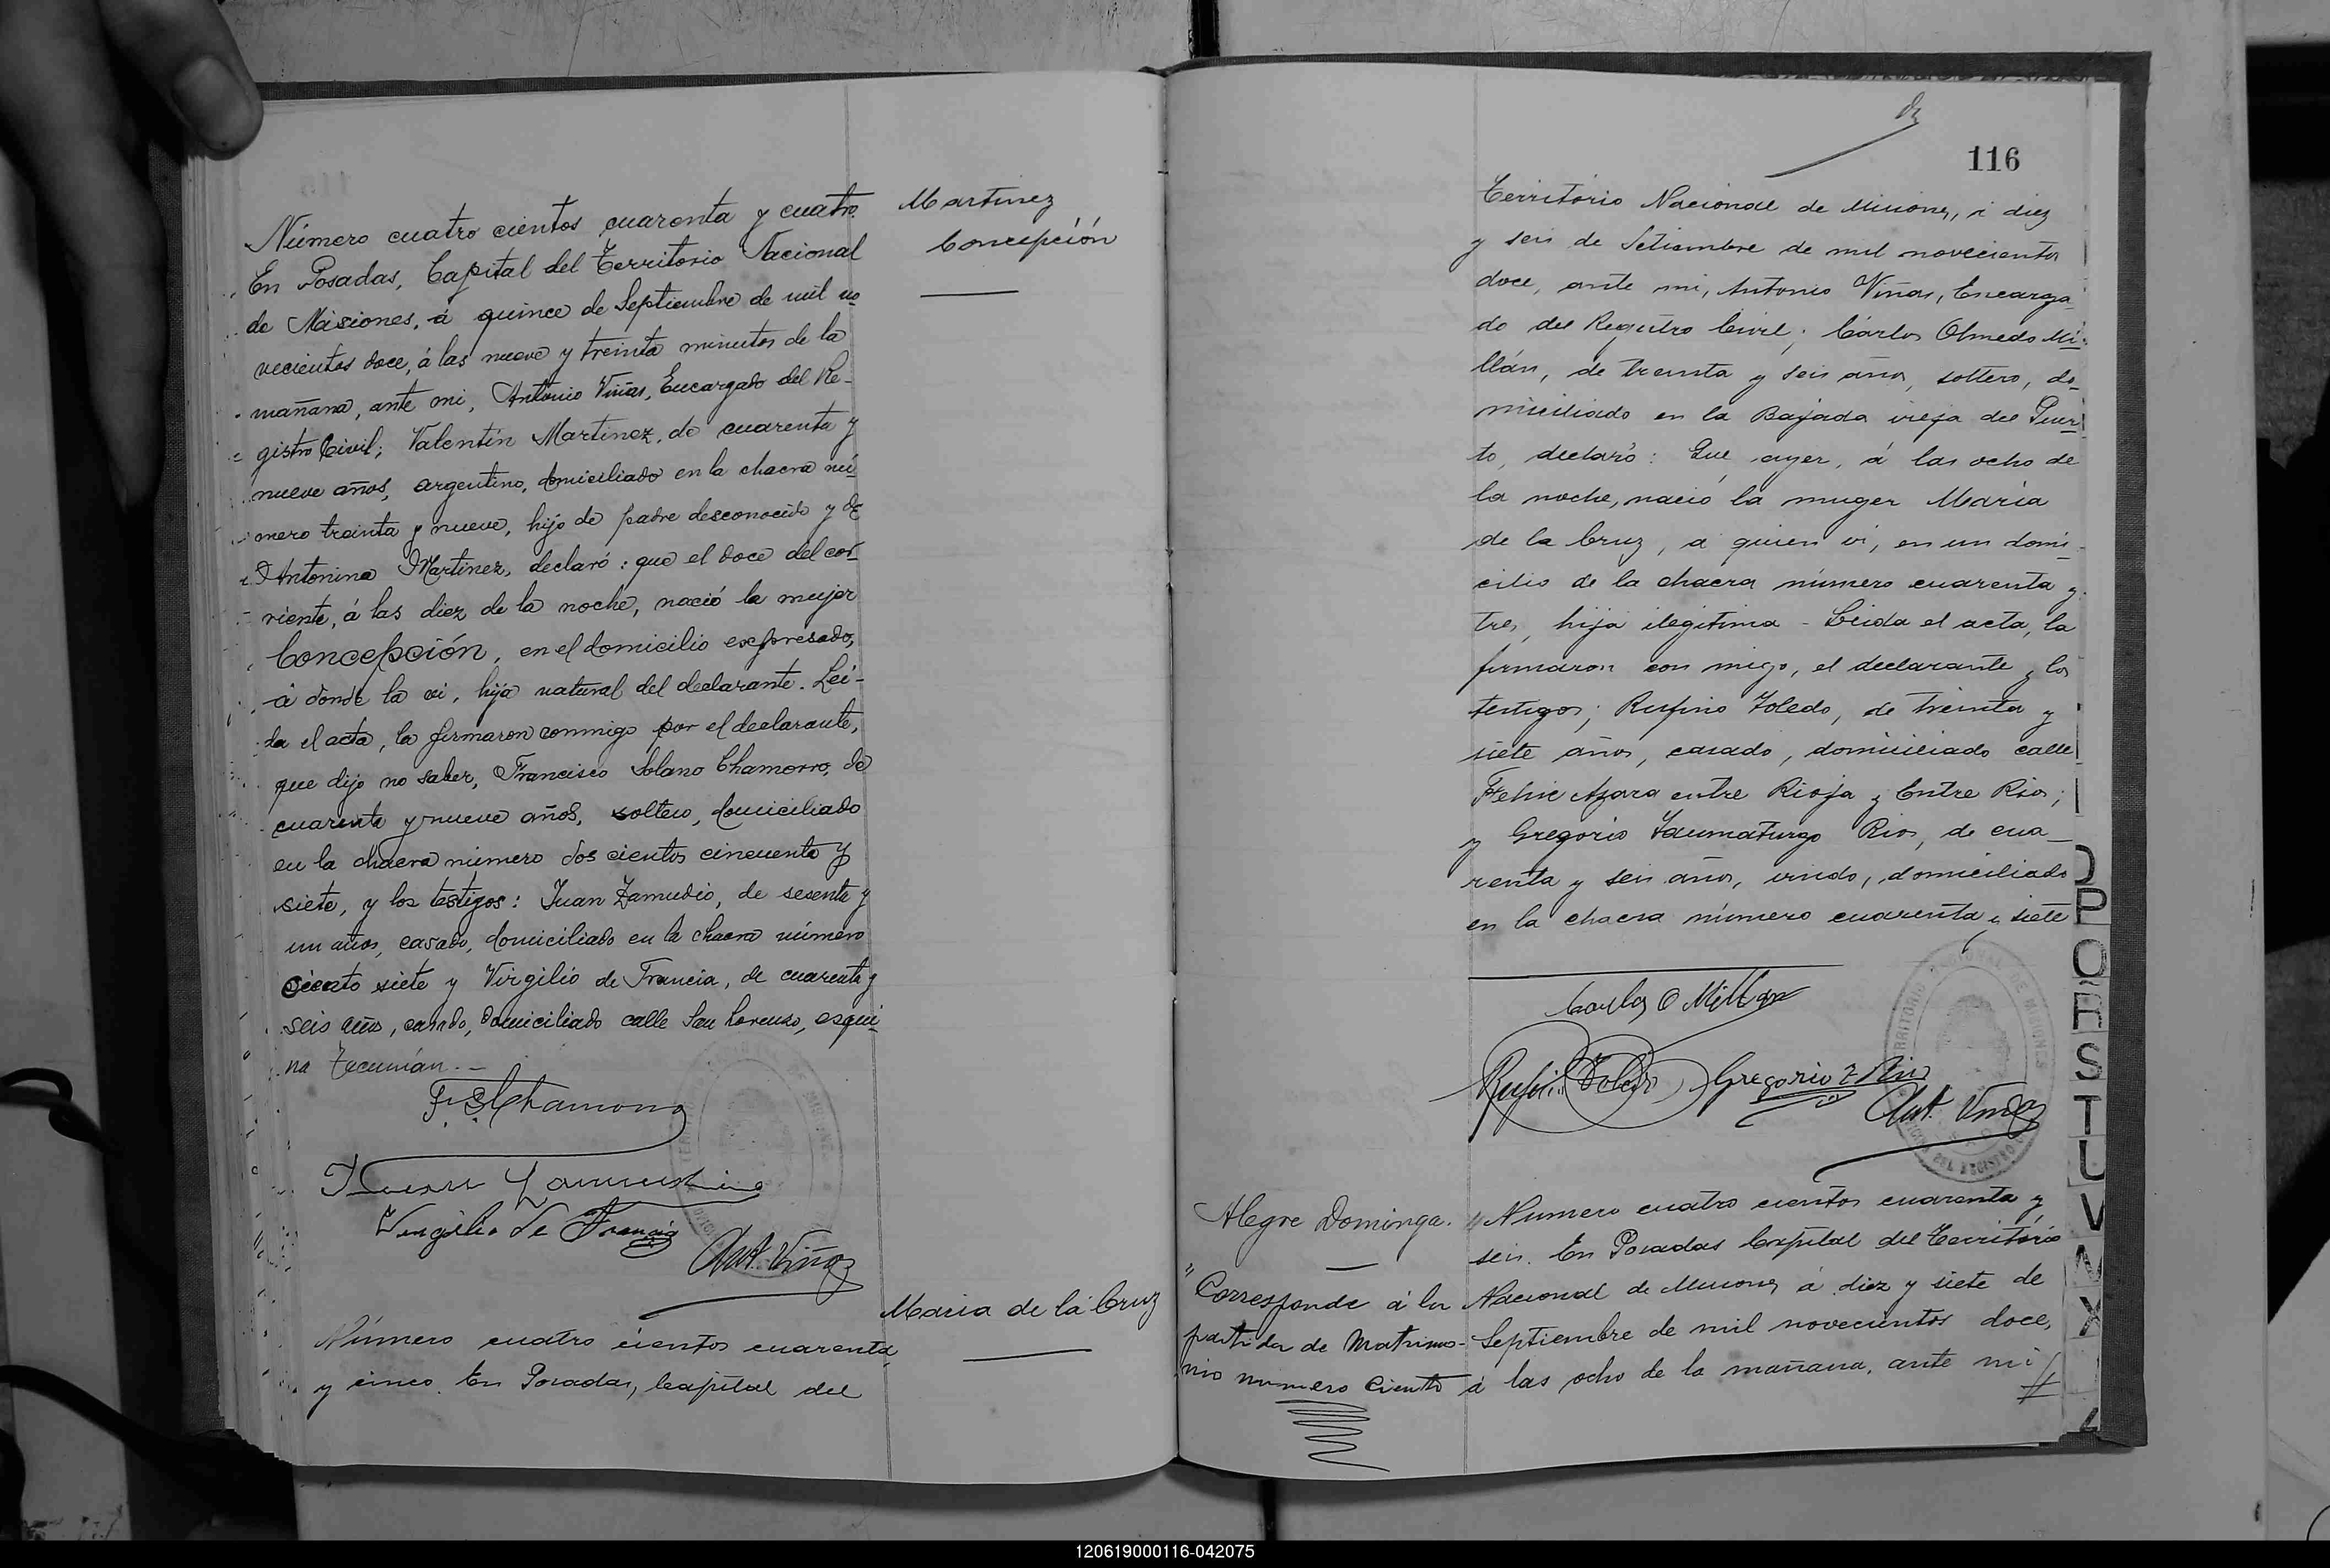 Número cuatro cientos cuarenta y cuatro.
En Posadas, Capital del Territorio Nacional
de Misiones, á quince de Septiembre de mil no
vecientos doce, á las nueve y treinta minutos de la
mañana, ante mi, Antonio Viñas, Encargado del Re-
gistro Civil; Valentín Martinez, de cuarenta y
nueve años, argentino, domiciliado en la chacra nú-
mero treinta y nueve, hijo de padre desconocido y de
Antonina Martinez, declaró: que el doce del cor-
riente, á las diez de la noche, nació la mujer
Concepción, en el domicilio expresado,
á donde la vi, hija natural del declarante. Lei-
da el acta, la firmaron conmigo por el declarante,
que dijo no saber, Francisco Solano Chamorro, de
cuarenta y nueve años, soltero, domiciliado
en la chacra número dos cientos cincuenta y
siete, y los testigos: Juan Zamudio, de sesenta y
un años, casado, domiciliado en la chacra número
ciento siete y Virgilio de Francia, de cuarenta y
seis años, casado, domiciliado calle San Lorenzo, esqui-
na Tucumán.-
F. S. Chamorro
Juan Zamudio
Virgilio de Francia
Ant. Viñas
Número cuatro cientos cuarenta
y cinco. En Posadas, Capital del
Martinez
Concepción
Maria de la Cruz
116
Territorio Nacional de Misiones, á diez
y seis de Setiembre de mil novecientos
doce, ante mi, Antonio Viñas, Encarga
do del Registro Civil; Cárlos Olmedo Mi-
llán, de treinta y seis años, soltero, do-
miciliado en la Bajada vieja del Puer-
to, declaró: Que ayer, á las ocho de
la noche, nació la muger María
de la Cruz, a quien vi, en un domi-
cilio de la chacra número cuarenta y
tres, hija ilegitima - Leida el acta, la
firmaron con migo, el declarante y los
testigos; Rufino Toledo, de treinta y
siete años, casado, domiciliado calle
Felix Azara entre Rioja y Entre Rios;
y Gregorio Taumaturgo Rios, de cua-
renta y seis años, viudo, domiciliado
en la chacra número cuarenta y siete
Carlos O Millan
Rufino Toledo
Gregorio T Rios
Ant. Viñas
Alegre Dominga.
"Corresponde á la
partida de Matrimo-
nio numero Ciento
Numero cuatro cientos cuarenta y
seis. En Posadas Capital del Territorio
Nacional de Misiones á diez y siete de
Septiembre de mil novecientos doce,
á las ocho de la mañana, ante mi
O
P
Q
R
S
T
U
V
X
Z
120619000116-042075